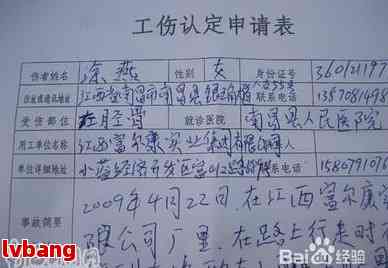 工伤认定申请表
伤者姓名 涂燕 性别 女 身份证号 360121197
住址或通讯地址 江西省南昌市南昌县银 联系电话 1357081498
受伤部位 左胫 就诊医院 南昌县人民医院
用工单位名称 江西富尔康实业 有限
单位详细地址 小蓝经济开发区富山 路 联系电话 1580791016
2009年4月22日,在江西富尔康实
事故简要 限公司厂里,在路上行走时
lvbang
Bai 百度经验